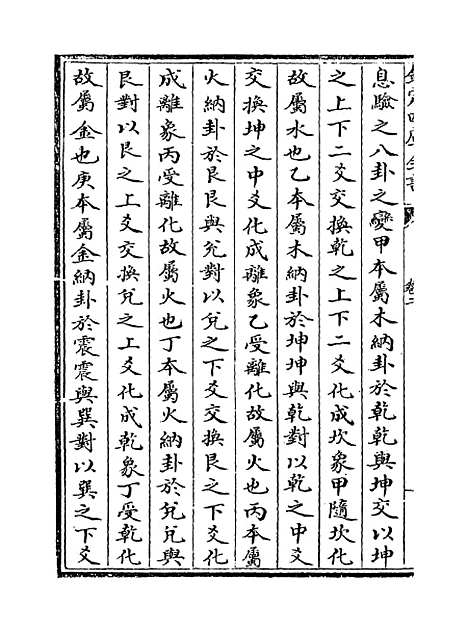 欽定四庫全書
卷二
息驗之八卦之變甲本屬木納卦於乾乾與坤交以坤
之上下二爻交換乾之上下二爻化成坎象甲隨坎化
故屬水也乙本屬木納卦於坤坤與乾對以乾之中爻
交換坤之中爻化成離象乙受離化故屬火也丙本屬
火納卦於艮艮與兊對以兊之下爻交換艮之下爻化
成離象丙受離化故屬火也丁本屬火納卦於兊兊與
艮對以艮之上爻交換兊之上爻化成乾象丁受乾化
故屬金也庚本屬金納卦於震震與巽對以巽之下爻